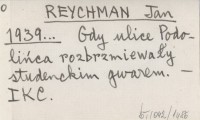 REYCHMAN Jan
1939... Gdy ulice Podo-
lińca rozbrzmiewały
studenckim gwarem. —
IKC.